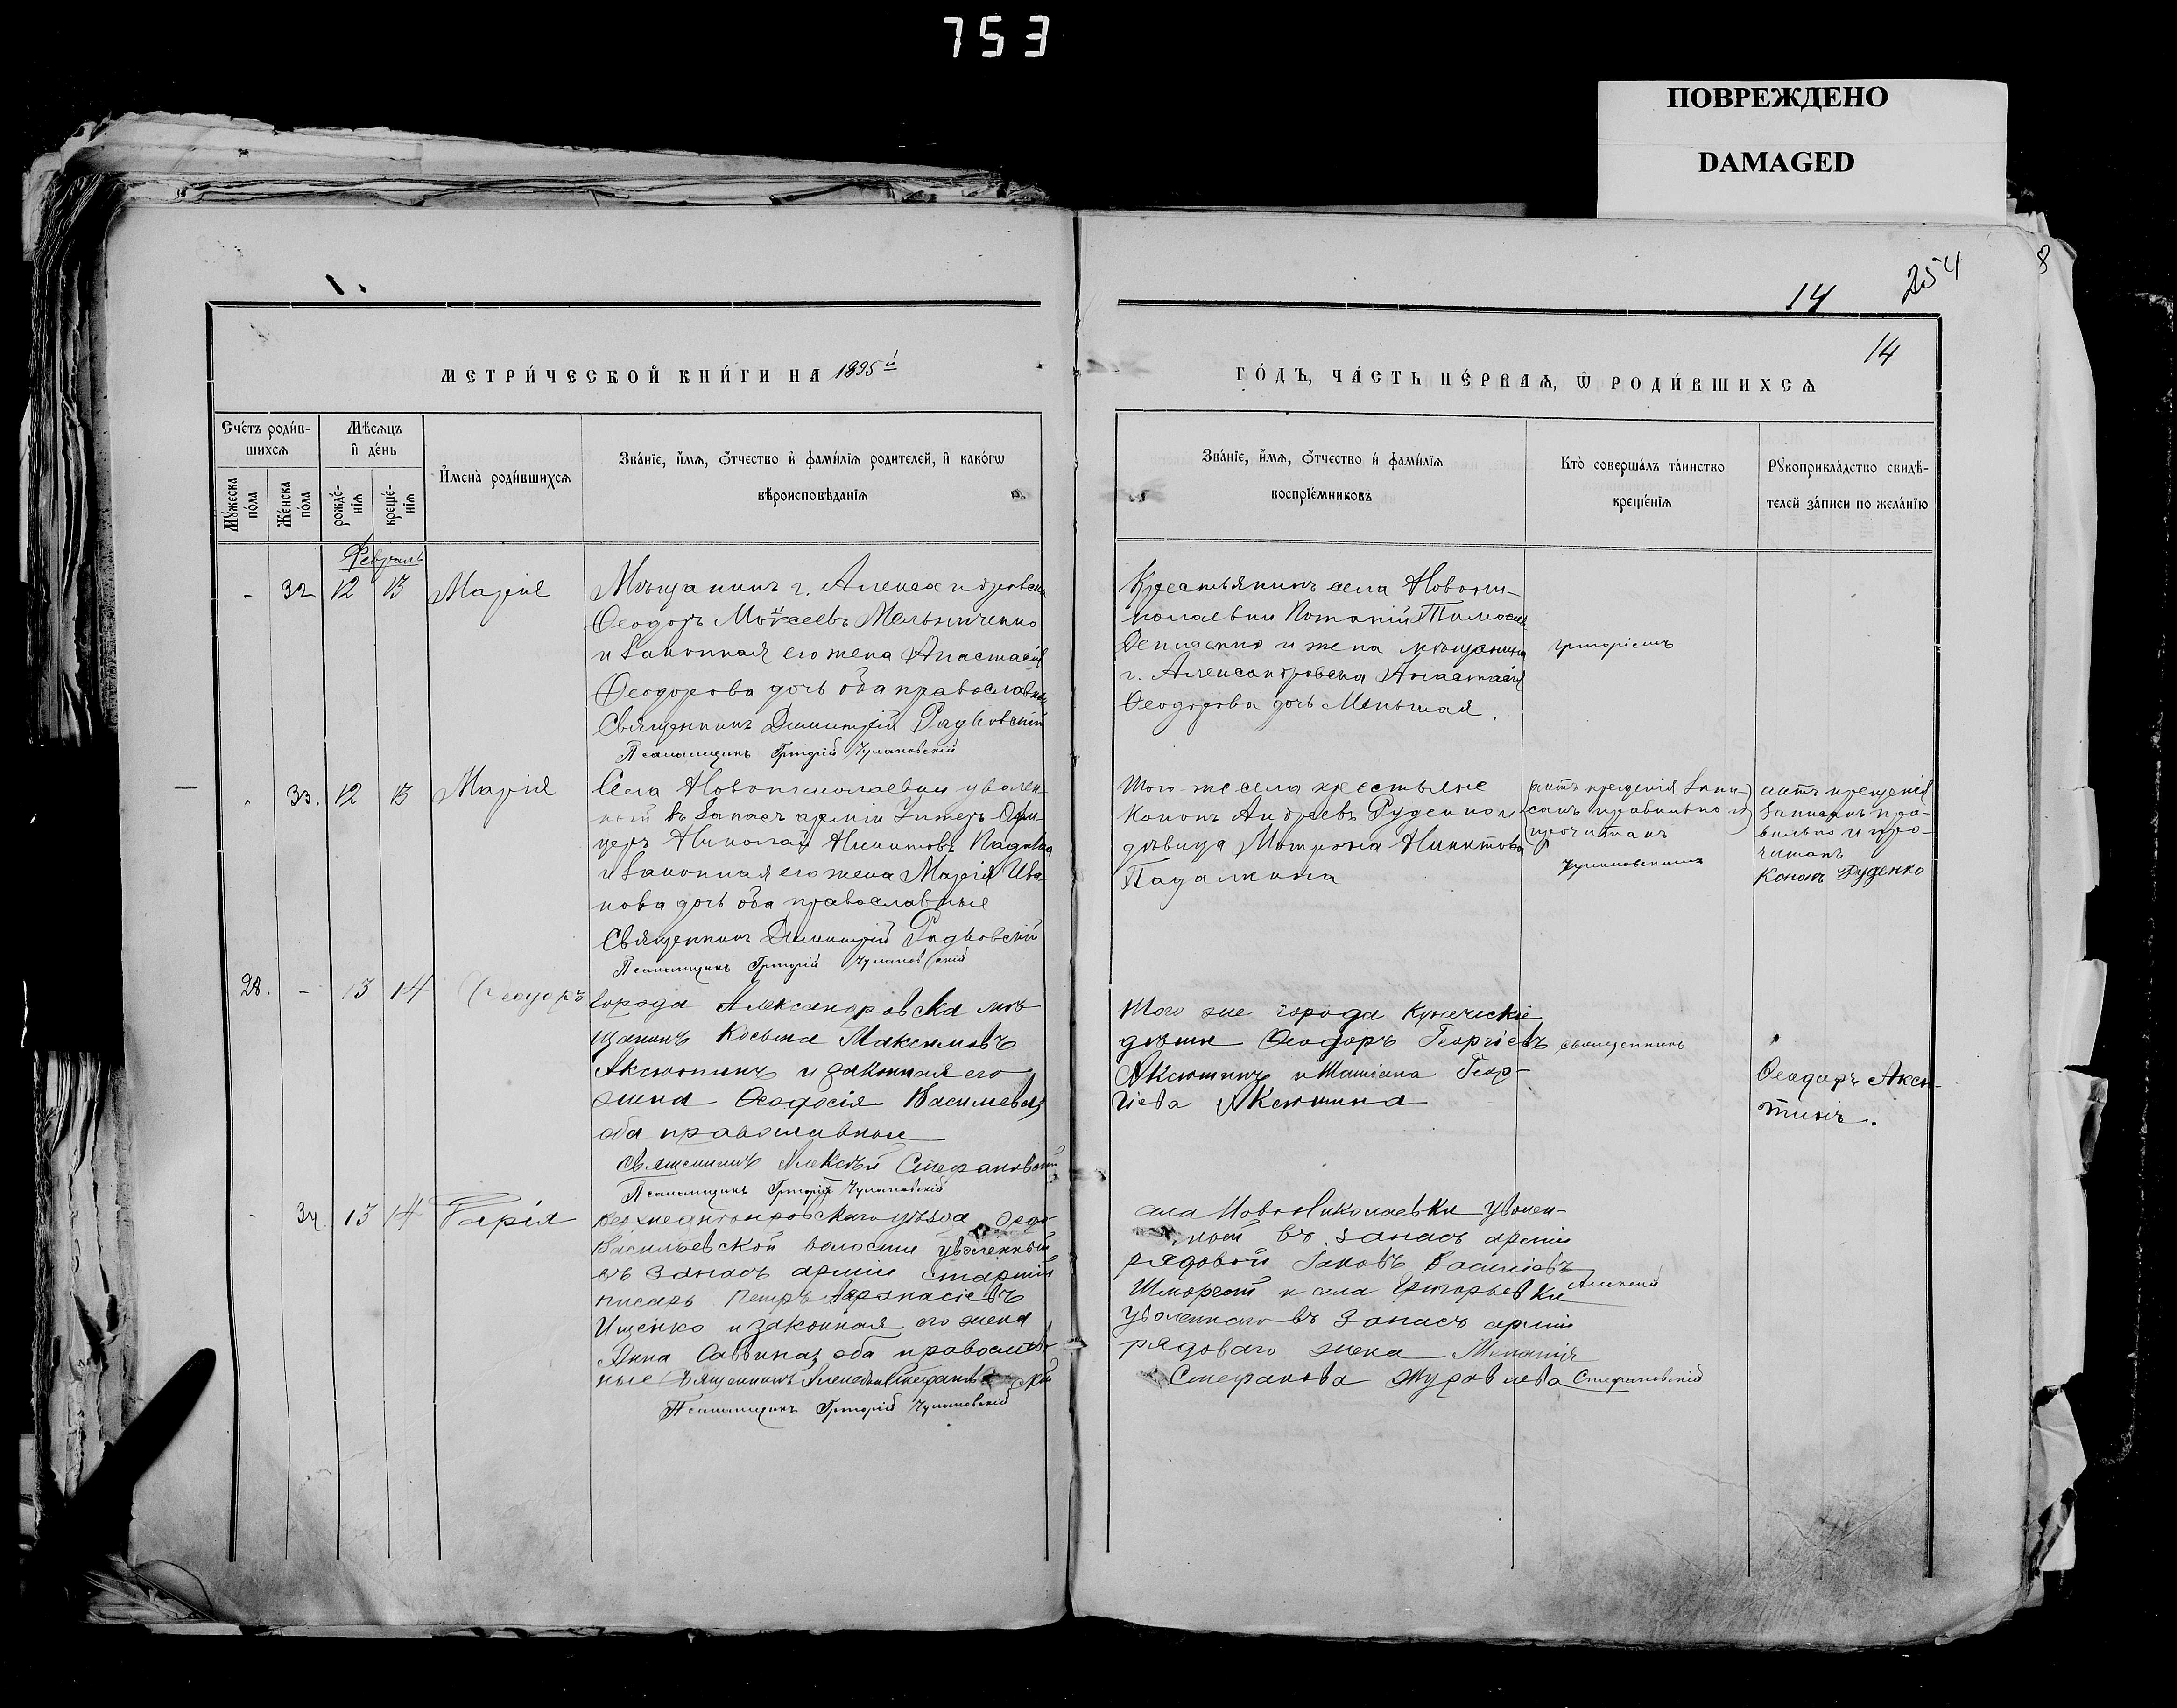 753
ПОВРЕЖДЕНО
DAMAGED
254
8
14
14
МЕТРИ́ЧЕСКОЙ КНИ́ГИ НА 1895й
ГО́ДЪ, ЧА́СТЬ ПЕ́РВАѦ, Ѽ РОДИ́ВШИХСѦ
Сче́тъ роди́в-
шихсѧ
Мꙋ́жеска по́ла
Же́нска по́ла
Мѣ́сѧцъ и҆ де́нь
рожде́-нїѧ
креще́-нїѧ
И҆мена̀ роди́вшихсѧ
Зва́нїе, и҆́мѧ, ѻ҆́тчество и҆ фами́лїѧ роди́телей, и҆ како́гѡ
вѣ́роисповѣ́данїѧ
Зва́нїе, и҆́мѧ, ѻ҆́тчество и҆ фами́лїѧ
воспрїе́мниковъ
Кто̀ соверша́лъ та́инство
креще́нїѧ
Рꙋкоприкла́дство свидѣ́-
телей за́писи по жела́нїю
Февраль
- 32 12 13 Марія
Мѣщанинъ г. Александровска
Ѳеодоръ Моѵсеевъ Мельниченко
и законная его жена Анастасія
Ѳеодорова дочь оба православные
Священникъ Димитрій Радковскій
Псаломщикъ Григорій Чулановскій
Крестьянинъ села Новони-
колаевки Потапій Тимоѳеев
и жена мѣщанина
г. Александровска Анастасія
Ѳеодорова дочь Меньшая.
Григоріемъ
33. 12 13 Марія
Села Новониколаевки уволен-
ный въ запасъ арміи Унтеръ-Офи-
церъ Николай Никитовъ Падалка
и законная его жена Марія Ива-
нова дочь оба православные
Священникъ Димитрій Радковскій
Псаломщикъ Григорій Чулановскій
Того-же села крестьяне
Кононъ Андреевъ Руденко и
дѣвица Матрона Никитова
Падалкина
(актъ крещенія запи-
санъ правильно и)
прочитанъ
Чулановскимъ
актъ крещенія
записанъ пра-
вильно и про-
читанъ
Кононъ Руденко
28. - 13 14 Ѳеодоръ
Города Александровска мѣ-
щанинъ Косьма Максимовъ
Аксютинъ и законная его
жена Ѳеодосія Василіева,
оба православные
Священникъ Алексѣй Стефановскій
Псаломщикъ Григорій Чулановскій
Того же города купеческіе
дѣти Ѳеодоръ Георгіевъ
Аксютинъ и Татіана Геор-
гіева Аксютина
священникъ
Ѳеодоръ Аксю-
тинъ.
- 34. 13 14 Марія
Верхнеднѣпровскаго уѣзда
Васильевской волости уволенный
въ запасъ арміи старшій
писарь Петръ Аѳанасіевъ
Ищенко и законная его жена
Анна Саввина, оба православ-
ные Священникъ Алексѣй Стефановскій
Псаломщикъ Григорій Чулановскій
села Новониколаевки уволен-
ный въ запасъ арміи
рядовой Іаковъ Василіевъ
и села Григорьевки
уволеннаго въ запасъ арміи
рядоваго жена Меланія
Стефанова Журавлева
Алексѣй
Стефановскій